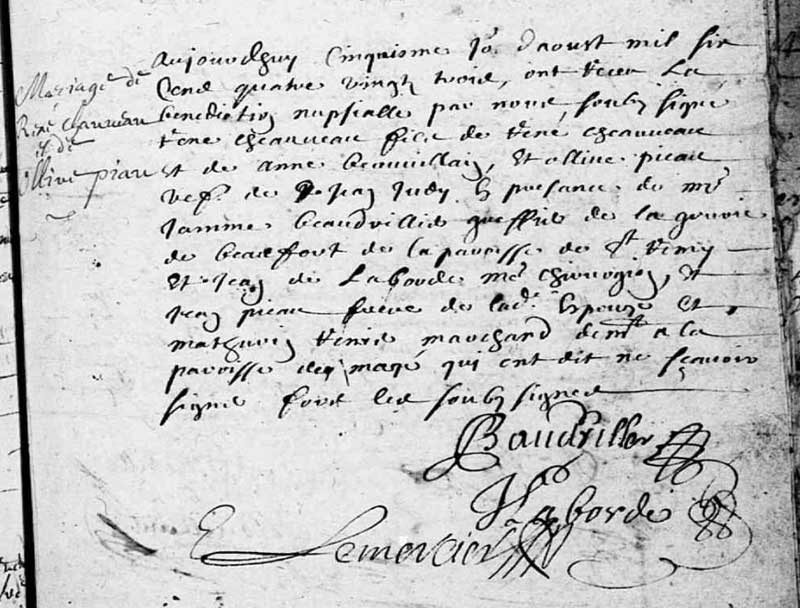 Mariage de
René Chauveau
et de
Ollive piau
Aujourdhuy cinquiesme jo. d'aoust mil six
cend quatre vingt trois, ont receu la
benediction nupsialle par nous, soubz signe
rene cheauveau filz de rene cheauveau
et de anne beauvillain, Et ollive picau
vefe. de Jean Judy En presance de mre
Jamme beaudrillie greffie de la
de beaufort de la paroisse de St remy
Et Jean de Laborde me chirurgien, et
jean picau frere de lade. Espouze Et
mathurin renie marchand demt a la
paroisse qui ont dit ne scavoir
signe fors les soubz signes
Baudriller
Laborde
E Lemercier